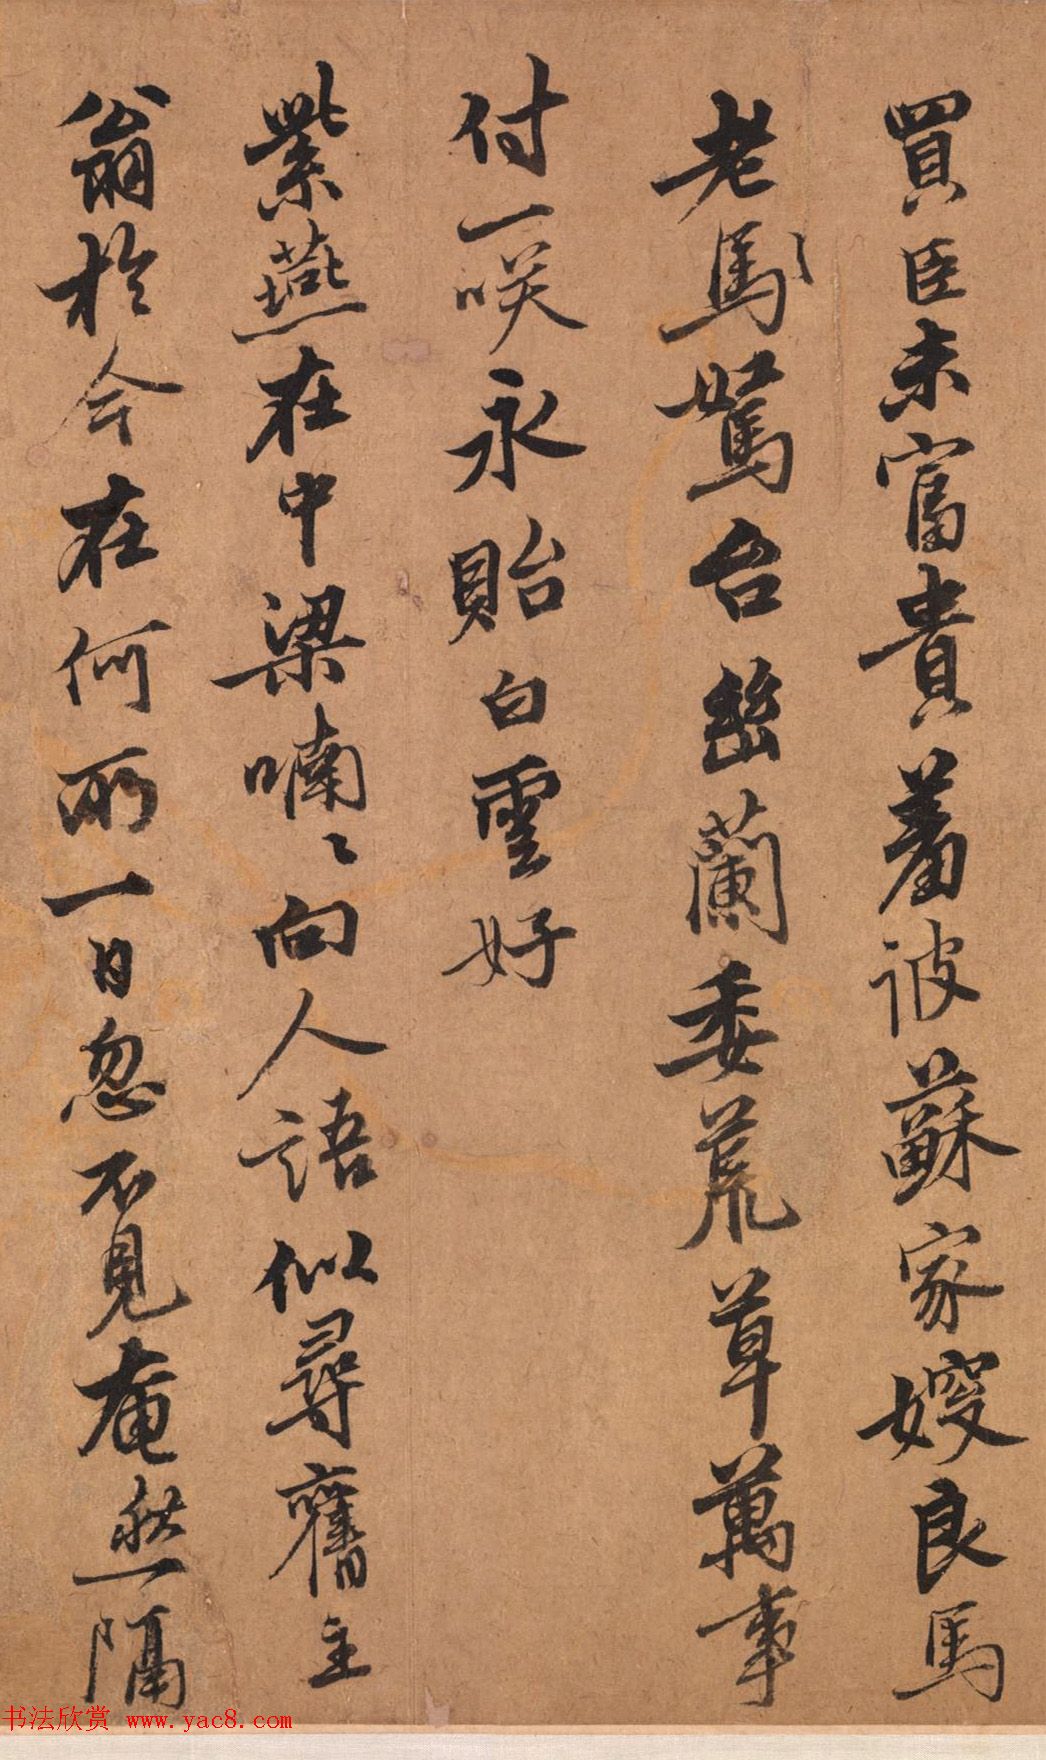 買臣未富貴羞彼蘇家嫂良馬
老馬駑台幽蘭委荒草萬事
付一咲永貽白雲好
紫燕在中梁喃〻向人語似尋舊主
翁於今在何所一日忽不見奄然隔
书法欣赏 www.yac8.com